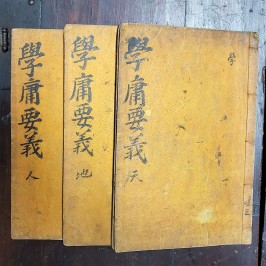 學庸要義
天
學
學庸要義
地
學庸要義
人